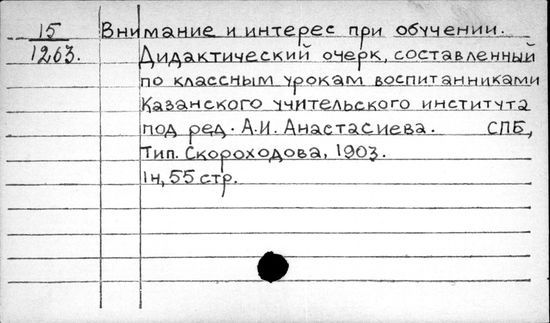 15 Внимание и интерес при обучении.
1263. Дидактический очерк, составленный
по классным урокам воспитанниками
Казанского учительского института
под ред. А.И. Анастасиева. СПБ,
Тип. Скороходова, 1903.
1н, 55 стр.